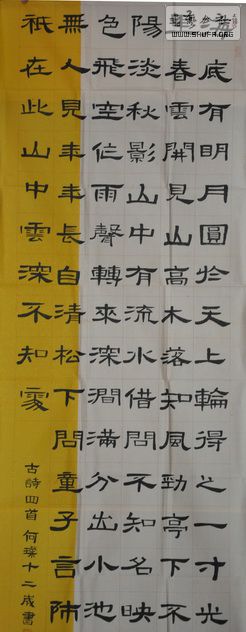 底有明月圓於天上輪得之一寸光
春雲開見山高木落知風勁亭下不
陽淡秋影山中有流水借問不知名映
色飛空作雨聲轉來深澗滿分出小池
無人見年年長自清松下問童子言師
祇在此山中雲深不知處
古詩四首 何璨十二歲書
WWW.SHUFA.ORG